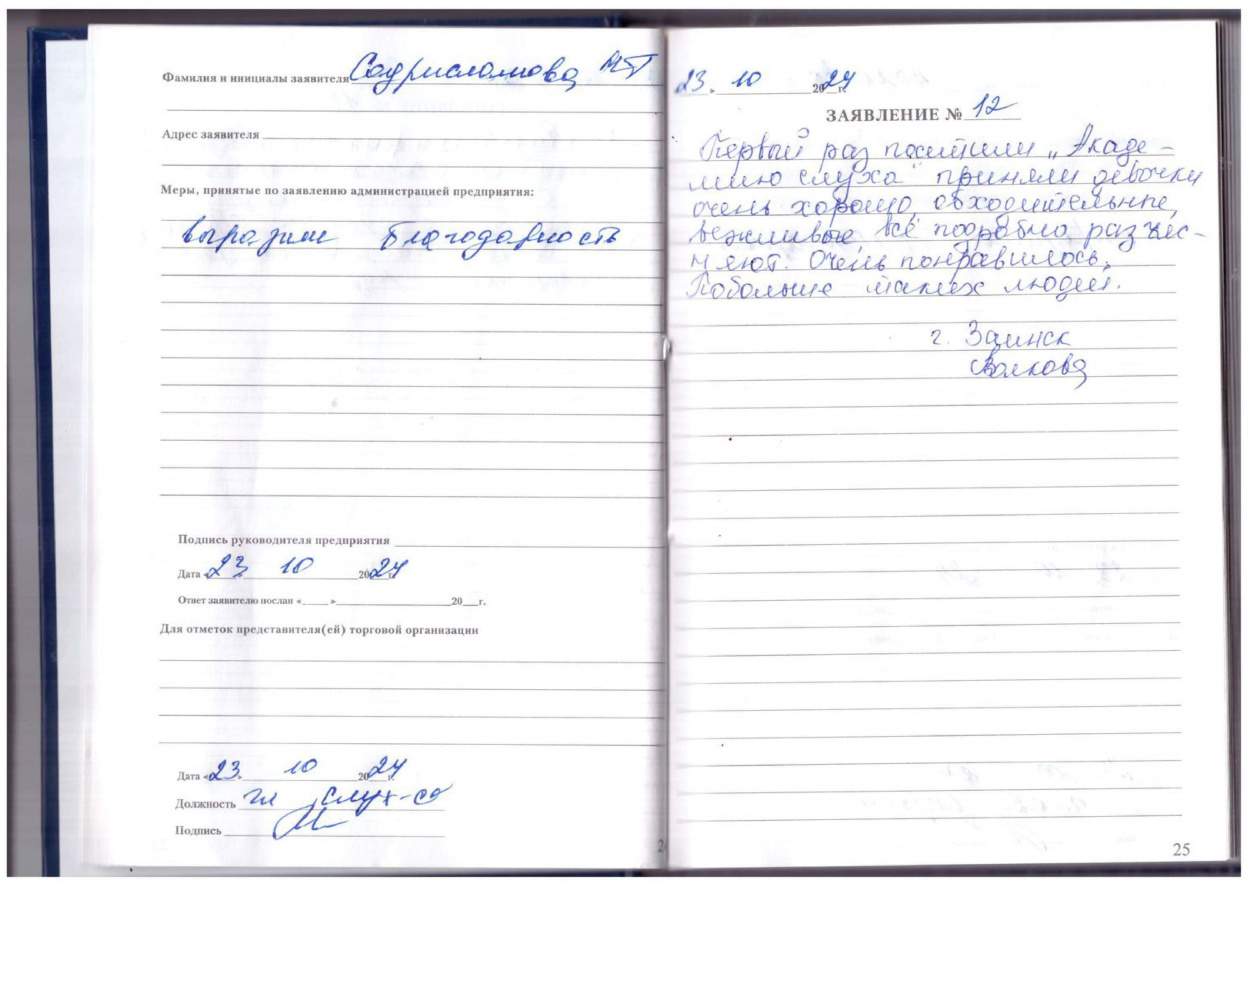 Фамилия и инициалы заявителя Садрисламова МТ
Адрес заявителя
Меры, принятые по заявлению администрацией предприятия:
выразили благодарность
Подпись руководителя предприятия
Дата «23 10 2024г.
Ответ заявителю послан «____»____20__г.
Для отметок представителя(ей) торговой организации
Дата «23» 10 2024г.
Должность гл слух-
Подпись
23 » 10 2024г.
ЗАЯВЛЕНИЕ № 12
Первый раз посетили „Акаде-
мию слуха" приняли девочки
очень хорошо, обходительные,
вежливые, всё подробно разъяс-
няют. Очень понравилось.
Побольше таких людей.
г. Заинск
Волкова
25